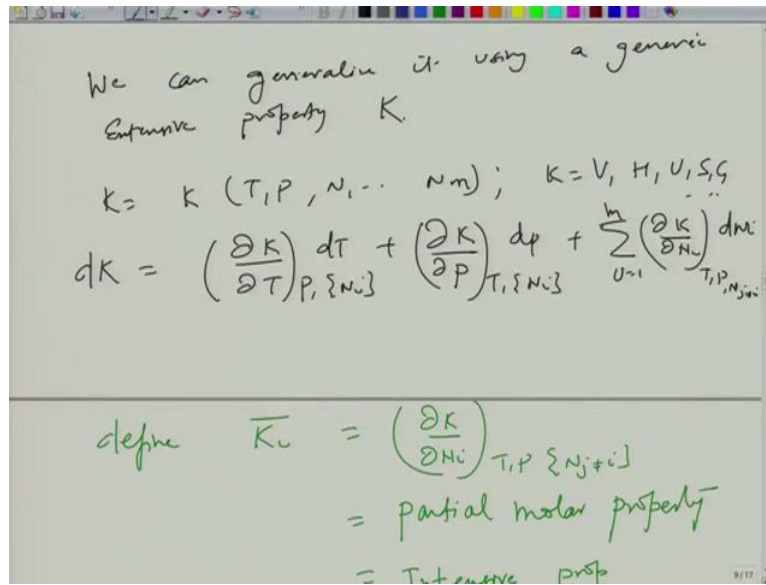 We can generalise it using a generic
Extensive property K.
K = K (T, P, N, .. Nm) ; K = V, H, U, S, G ..
dK = (∂K/∂T)_{P, {Ni}} dT + (∂K/∂P)_{T, {Ni}} dp + ∑_{i=1}^{m} (∂K/∂Ni)_{T, P, Nj≠i} dNi
define K̅i = (∂K/∂Ni)_{T, P {Nj≠i}}
= partial molar property
= Intensive prop
9/17